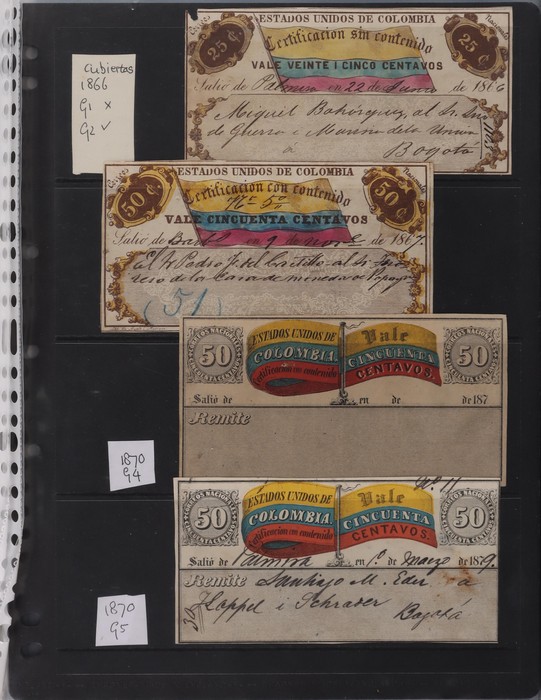 Cubiertas
1866
G1 x
G2 ✓
Correos Nacionales
ESTADOS UNIDOS DE COLOMBIA
25 ¢
25 ¢
Certificacion sin contenido
VALE VEINTE I CINCO CENTAVOS
Salió de Palmira en 22 de Junio de 1866
Miguel Bohórquez, al Sr. Srio
de Guerra i Marina de la Union
a Bogotá
Correos Nacionales
ESTADOS UNIDOS DE COLOMBIA
50 ¢
50 ¢
Certificacion con contenido
VALE CINCUENTA CENTAVOS
Salió de en 9 de Novre de 1867.
El Sr Pedro J. del Castillo al Sr.
de la Casa de moneda de Popayan
(51)
CORREOS NACIONALES
50
CINCUENTA CENTAVOS
ESTADOS UNIDOS DE
COLOMBIA.
Certificacion con contenido
Vale
CINCUENTA
CENTAVOS.
CORREOS NACIONALES
50
CINCUENTA CENTAVOS
Salió de en de de 187
Remite
1870
G4
Nº 11
CORREOS NACIONALES
50
CINCUENTA CENTAVOS
ESTADOS UNIDOS DE
COLOMBIA.
Certificacion con contenido
Vale
CINCUENTA
CENTAVOS.
CORREOS NACIONALES
50
CINCUENTA CENTAVOS
Salió de Palmira en 1º de Marzo de 1879.
Remite Santiago M. Eder a
Koppel i Schrader
Bogotá
1870
G5